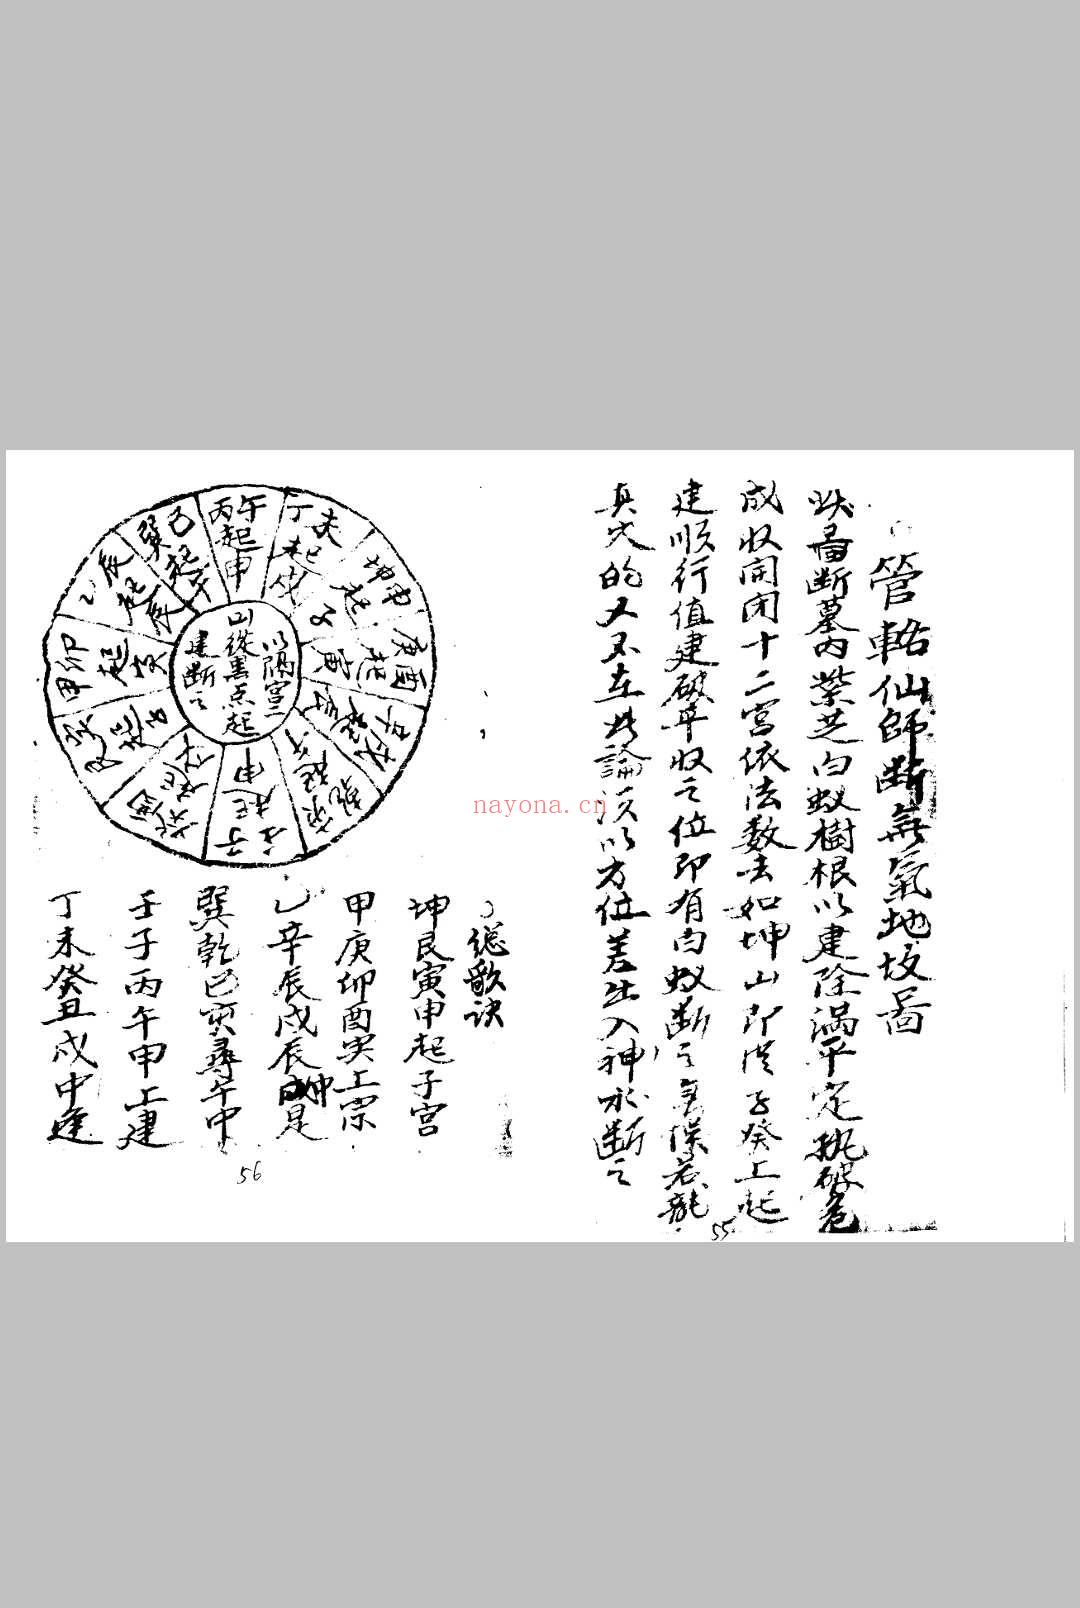 管輅仙師断無氣地坟啚
此啚断墓内紫芝白蚁樹根以建除满平定执破危
成收開闭十二宮依法数去如坤山即從子癸上起
建順行值建破平收之位即有白蚁断之無误若龍
真穴的又不在此論須以方位差出入神水断之
55
以隔宮二
山從墨点起
建断之
午丙起申
未丁起戌
坤申起子
庚酉起寅
辛戌起辰
乾亥起午
壬子起申
癸丑起戌
艮寅起子
甲卯起寅
乙辰起辰
巽巳起午
nayona.cn
總歌訣
坤艮寅申起子宮
甲庚卯酉寅上宗
乙辛辰戌辰是
巽乾巳亥尋午中
壬子丙午申上建
丁未癸丑戌中逢
56